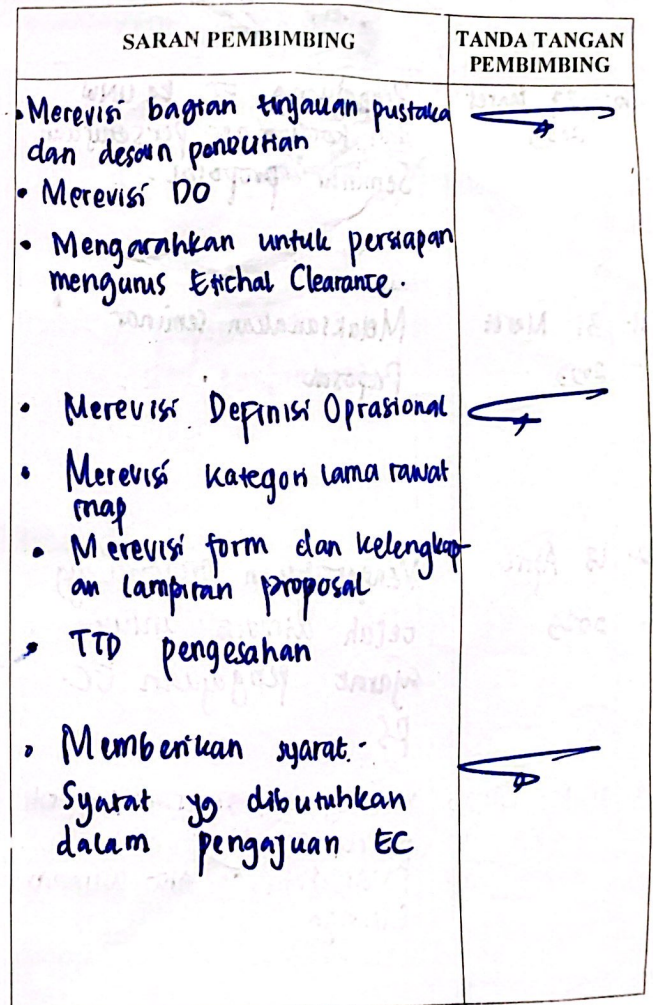 SARAN PEMBIMBING
TANDA TANGAN
PEMBIMBING
• Merevisi bagian tinjauan pustaka
dan desain penelitian
• Merevisi DO
• Mengarahkan untuk persiapan
mengurus Etichal Clearance.
• Merevisi Definisi Oprasional
• Merevisi kategori lama rawat
inap
• Merevisi form dan kelengkap
an lampiran proposal
• TTD pengesahan
• Memberikan syarat -
Syarat yg dibutuhkan
dalam pengajuan EC